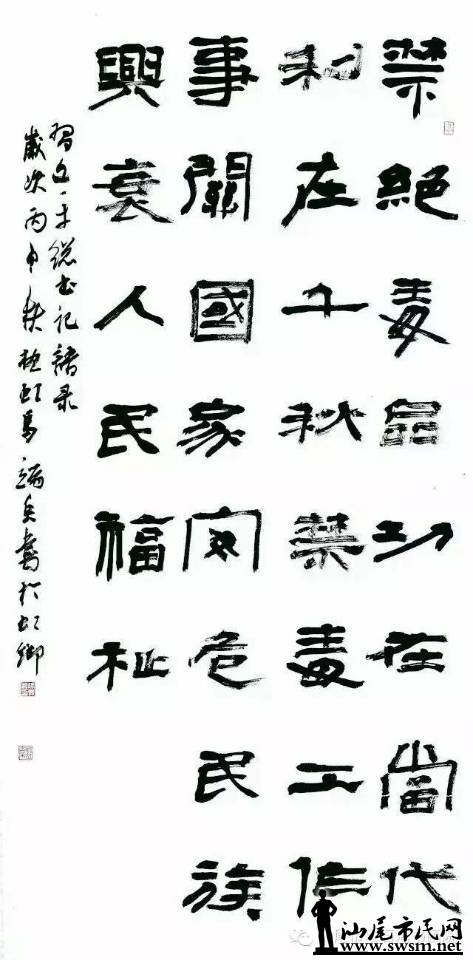 禁絕毒品功在當代
利在千秋禁毒工作
事關國家安危民族
興衰人民福祉
習近平總書記語录
歲次丙申秋
汕尾市民网
www.swsm.net